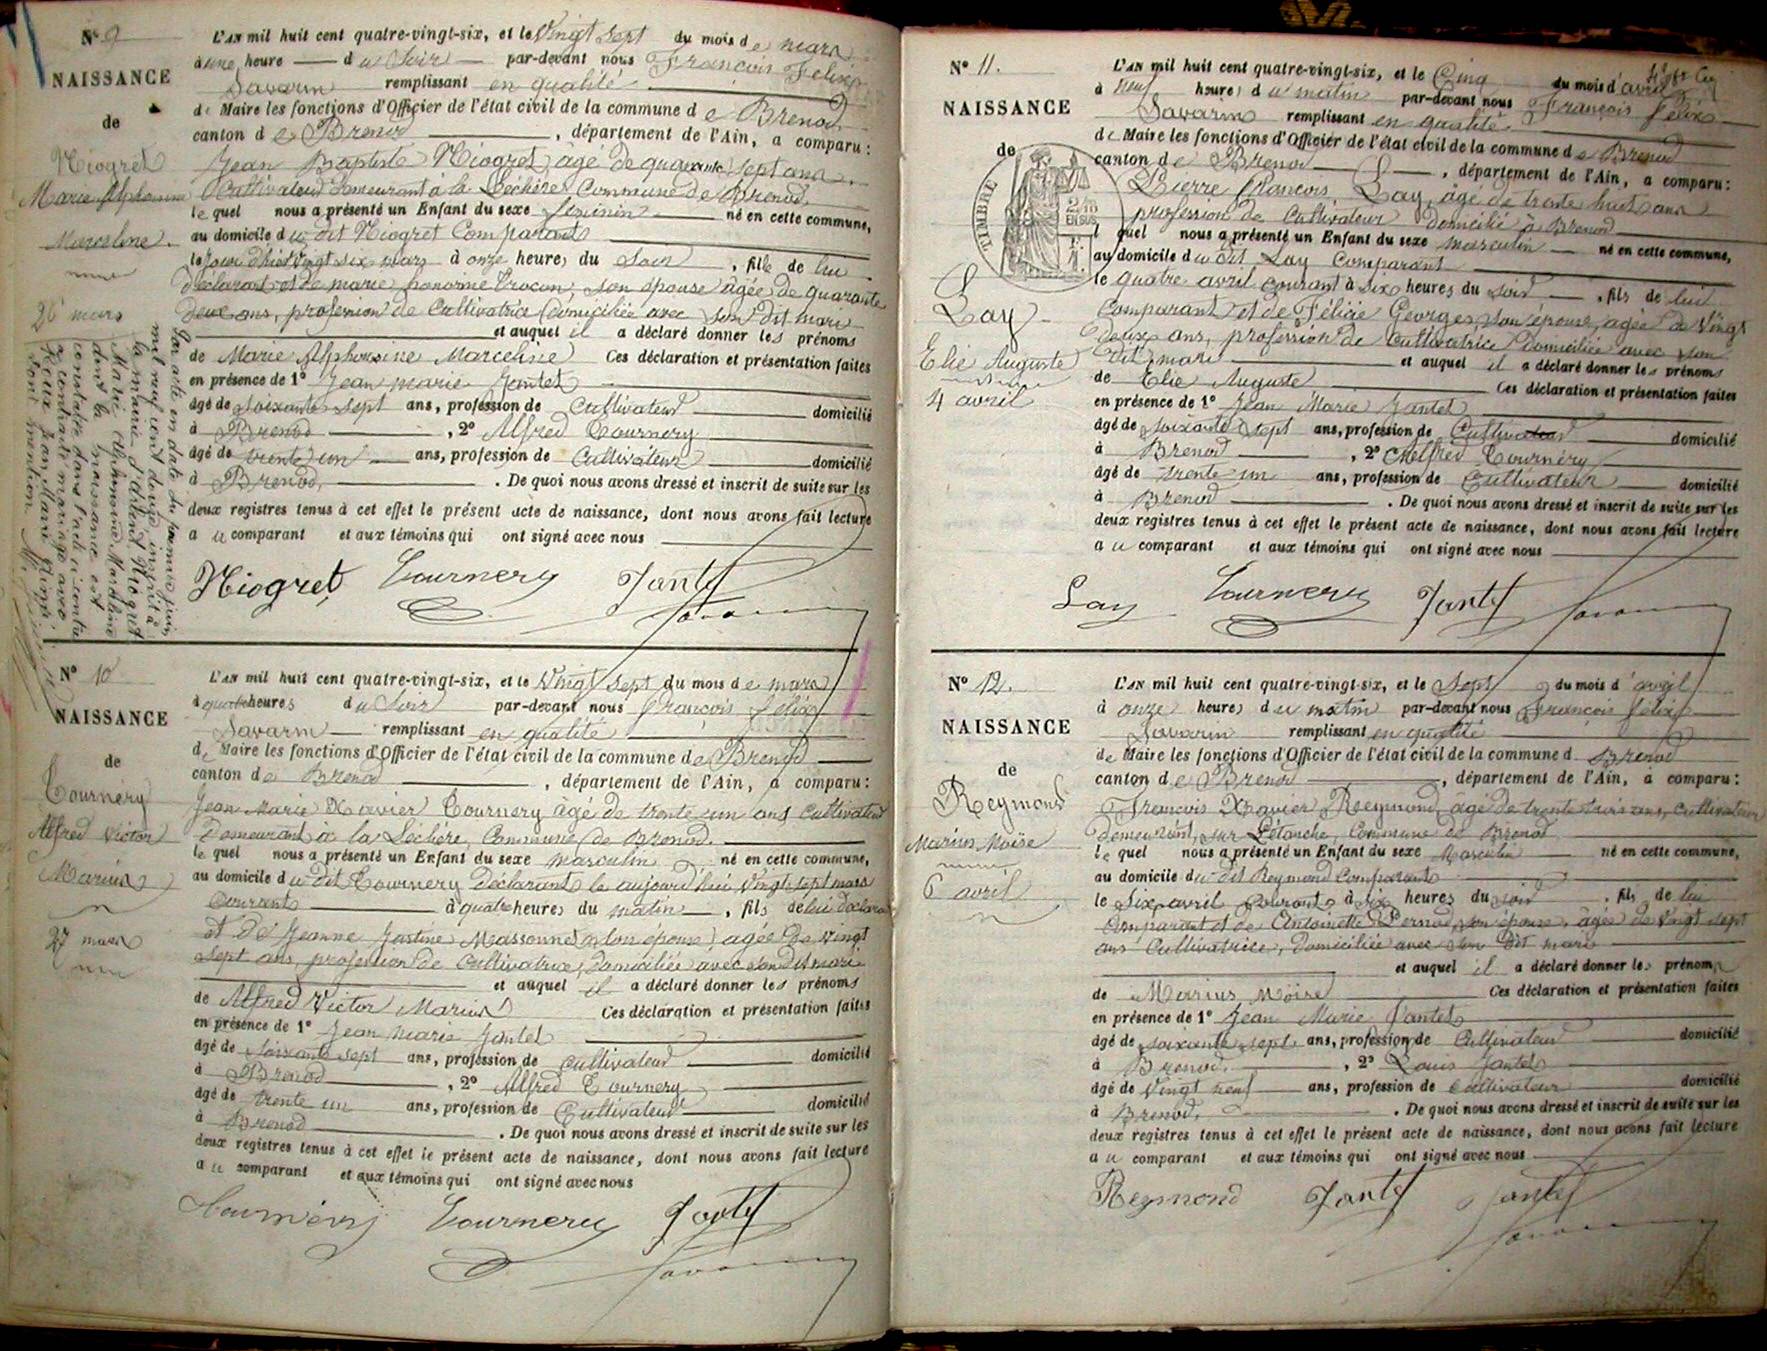 N° 9
NAISSANCE
de
Niogret
Marie Alphonsine
Marceline
26 mars
L'AN mil huit cent quatre-vingt-six, et le Vingt sept du mois de mars
à une heure du Soir par-devant nous François Félix
Savarin remplissant en qualité
de Maire les fonctions d'Officier de l'état civil de la commune de Brenod
canton de Brenod, département de l'Ain, a comparu:
Jean Baptiste Niogret, âgé de quarante sept ans
Cultivateur demeurant à la Léchère Commune de Brenod,
lequel nous a présenté un Enfant du sexe féminin né en cette commune,
au domicile du dit Niogret Comparant
le jour d'hier Vingt six mars à onze heures du Soir, fille de lui
déclarant et de marie honorine, son épouse âgée de quarante
deux ans, profession de Cultivatrice domiciliée avec son dit mari
et auquel il a déclaré donner les prénoms
de Marie Alphonsine Marceline Ces déclaration et présentation faites
en présence de 1° Jean marie Jantet
âgé de soixante sept ans, profession de Cultivateur domicilié
à Brenod, 2° Alfred Tournery
âgé de trente un ans, profession de Cultivateur domicilié
à Brenod. De quoi nous avons dressé et inscrit de suite sur les
deux registres tenus à cet effet le présent acte de naissance, dont nous avons fait lecture
au comparant et aux témoins qui ont signé avec nous
Niogret Tournery Jantet
Savarin
Par acte en date du premier juin
mil neuf cent douze inscrit à
la mairie d'
Marie Alphonsine Marceline
dont la naissance est
constatée dans l'acte ci-contre
a contracté mariage avec
Jean Marie
Dont mention
N° 10
NAISSANCE
de
Tournery
Alfred Victor
Marius
27 mars
L'AN mil huit cent quatre-vingt-six, et le Vingt sept du mois de mars
à quatre heures du Soir par-devant nous François Félix
Savarin remplissant en qualité
de Maire les fonctions d'Officier de l'état civil de la commune de Brenod
canton de Brenod, département de l'Ain, a comparu:
Jean Marie Xavier Tournery âgé de trente un ans Cultivateur
demeurant à la Léchère, Commune de Brenod.
lequel nous a présenté un Enfant du sexe masculin né en cette commune,
au domicile du dit Tournery déclarant le aujourd'hui Vingt sept mars
Courant à quatre heures du matin, fils de lui déclarant
et de Jeanne Justine Massonnet son épouse, âgée de Vingt
sept ans, profession de Cultivatrice, domiciliée avec son dit mari
et auquel il a déclaré donner les prénoms
de Alfred Victor Marius Ces déclaration et présentation faites
en présence de 1° Jean marie Jantet
âgé de soixante sept ans, profession de Cultivateur domicilié
à Brenod, 2° Alfred Tournery
âgé de trente un ans, profession de Cultivateur domicilié
à Brenod. De quoi nous avons dressé et inscrit de suite sur les
deux registres tenus à cet effet le présent acte de naissance, dont nous avons fait lecture
au comparant et aux témoins qui ont signé avec nous
Tournery Tournery Jantet
Savarin
N° 11.
NAISSANCE
de
TIMBRE
2/10
EN SUS
Lay
Elie Auguste
4 avril
L'AN mil huit cent quatre-vingt-six, et le Cinq du mois d'avril
à neuf heures du matin par-devant nous François Félix
Savarin remplissant en qualité
de Maire les fonctions d'Officier de l'état civil de la commune de Brenod
canton de Brenod, département de l'Ain, a comparu:
Pierre François Lay, âgé de trente huit ans
profession de Cultivateur domicilié à Brenod
lequel nous a présenté un Enfant du sexe masculin né en cette commune,
au domicile du dit Lay Comparant
le quatre avril courant à six heures du soir, fils de lui
Comparant et de Félicie Georges, son épouse, âgée de Vingt
deux ans, profession de Cultivatrice domiciliée avec son
dit mari et auquel il a déclaré donner les prénoms
de Elie Auguste Ces déclaration et présentation faites
en présence de 1° Jean Marie Jantet
âgé de soixante sept ans, profession de Cultivateur domicilié
à Brenod, 2° Alfred Tournery
âgé de trente un ans, profession de Cultivateur domicilié
à Brenod. De quoi nous avons dressé et inscrit de suite sur les
deux registres tenus à cet effet le présent acte de naissance, dont nous avons fait lecture
au comparant et aux témoins qui ont signé avec nous
Lay Tournery Jantet Savarin
N° 12.
NAISSANCE
de
Reymond
Marius Moïse
6 avril
L'AN mil huit cent quatre-vingt-six, et le Sept du mois d'avril
à onze heures du matin par-devant nous François Félix
Savarin remplissant en qualité
de Maire les fonctions d'Officier de l'état civil de la commune d Brenod
canton de Brenod, département de l'Ain, a comparu:
François Xavier Reymond, âgé de trente trois ans, Cultivateur
demeurant, sur Létanche, Commune de Brenod
lequel nous a présenté un Enfant du sexe Masculin né en cette commune,
au domicile du dit Reymond Comparant
le Six avril Courant à six heures du soir, fils de lui
Comparant et de Antoinette Pernod, son épouse, âgée de Vingt sept
ans Cultivatrice, domiciliée avec son dit mari
et auquel il a déclaré donner les prénoms
de Marius Moïse Ces déclaration et présentation faites
en présence de 1° Jean Marie Jantet
âgé de soixante sept ans, profession de Cultivateur domicilié
à Brenod, 2° Louis Jantet
âgé de Vingt neuf ans, profession de Cultivateur domicilié
à Brenod. De quoi nous avons dressé et inscrit de suite sur les
deux registres tenus à cet effet le présent acte de naissance, dont nous avons fait lecture
au comparant et aux témoins qui ont signé avec nous
Reymond Jantet Jantet
Savarin